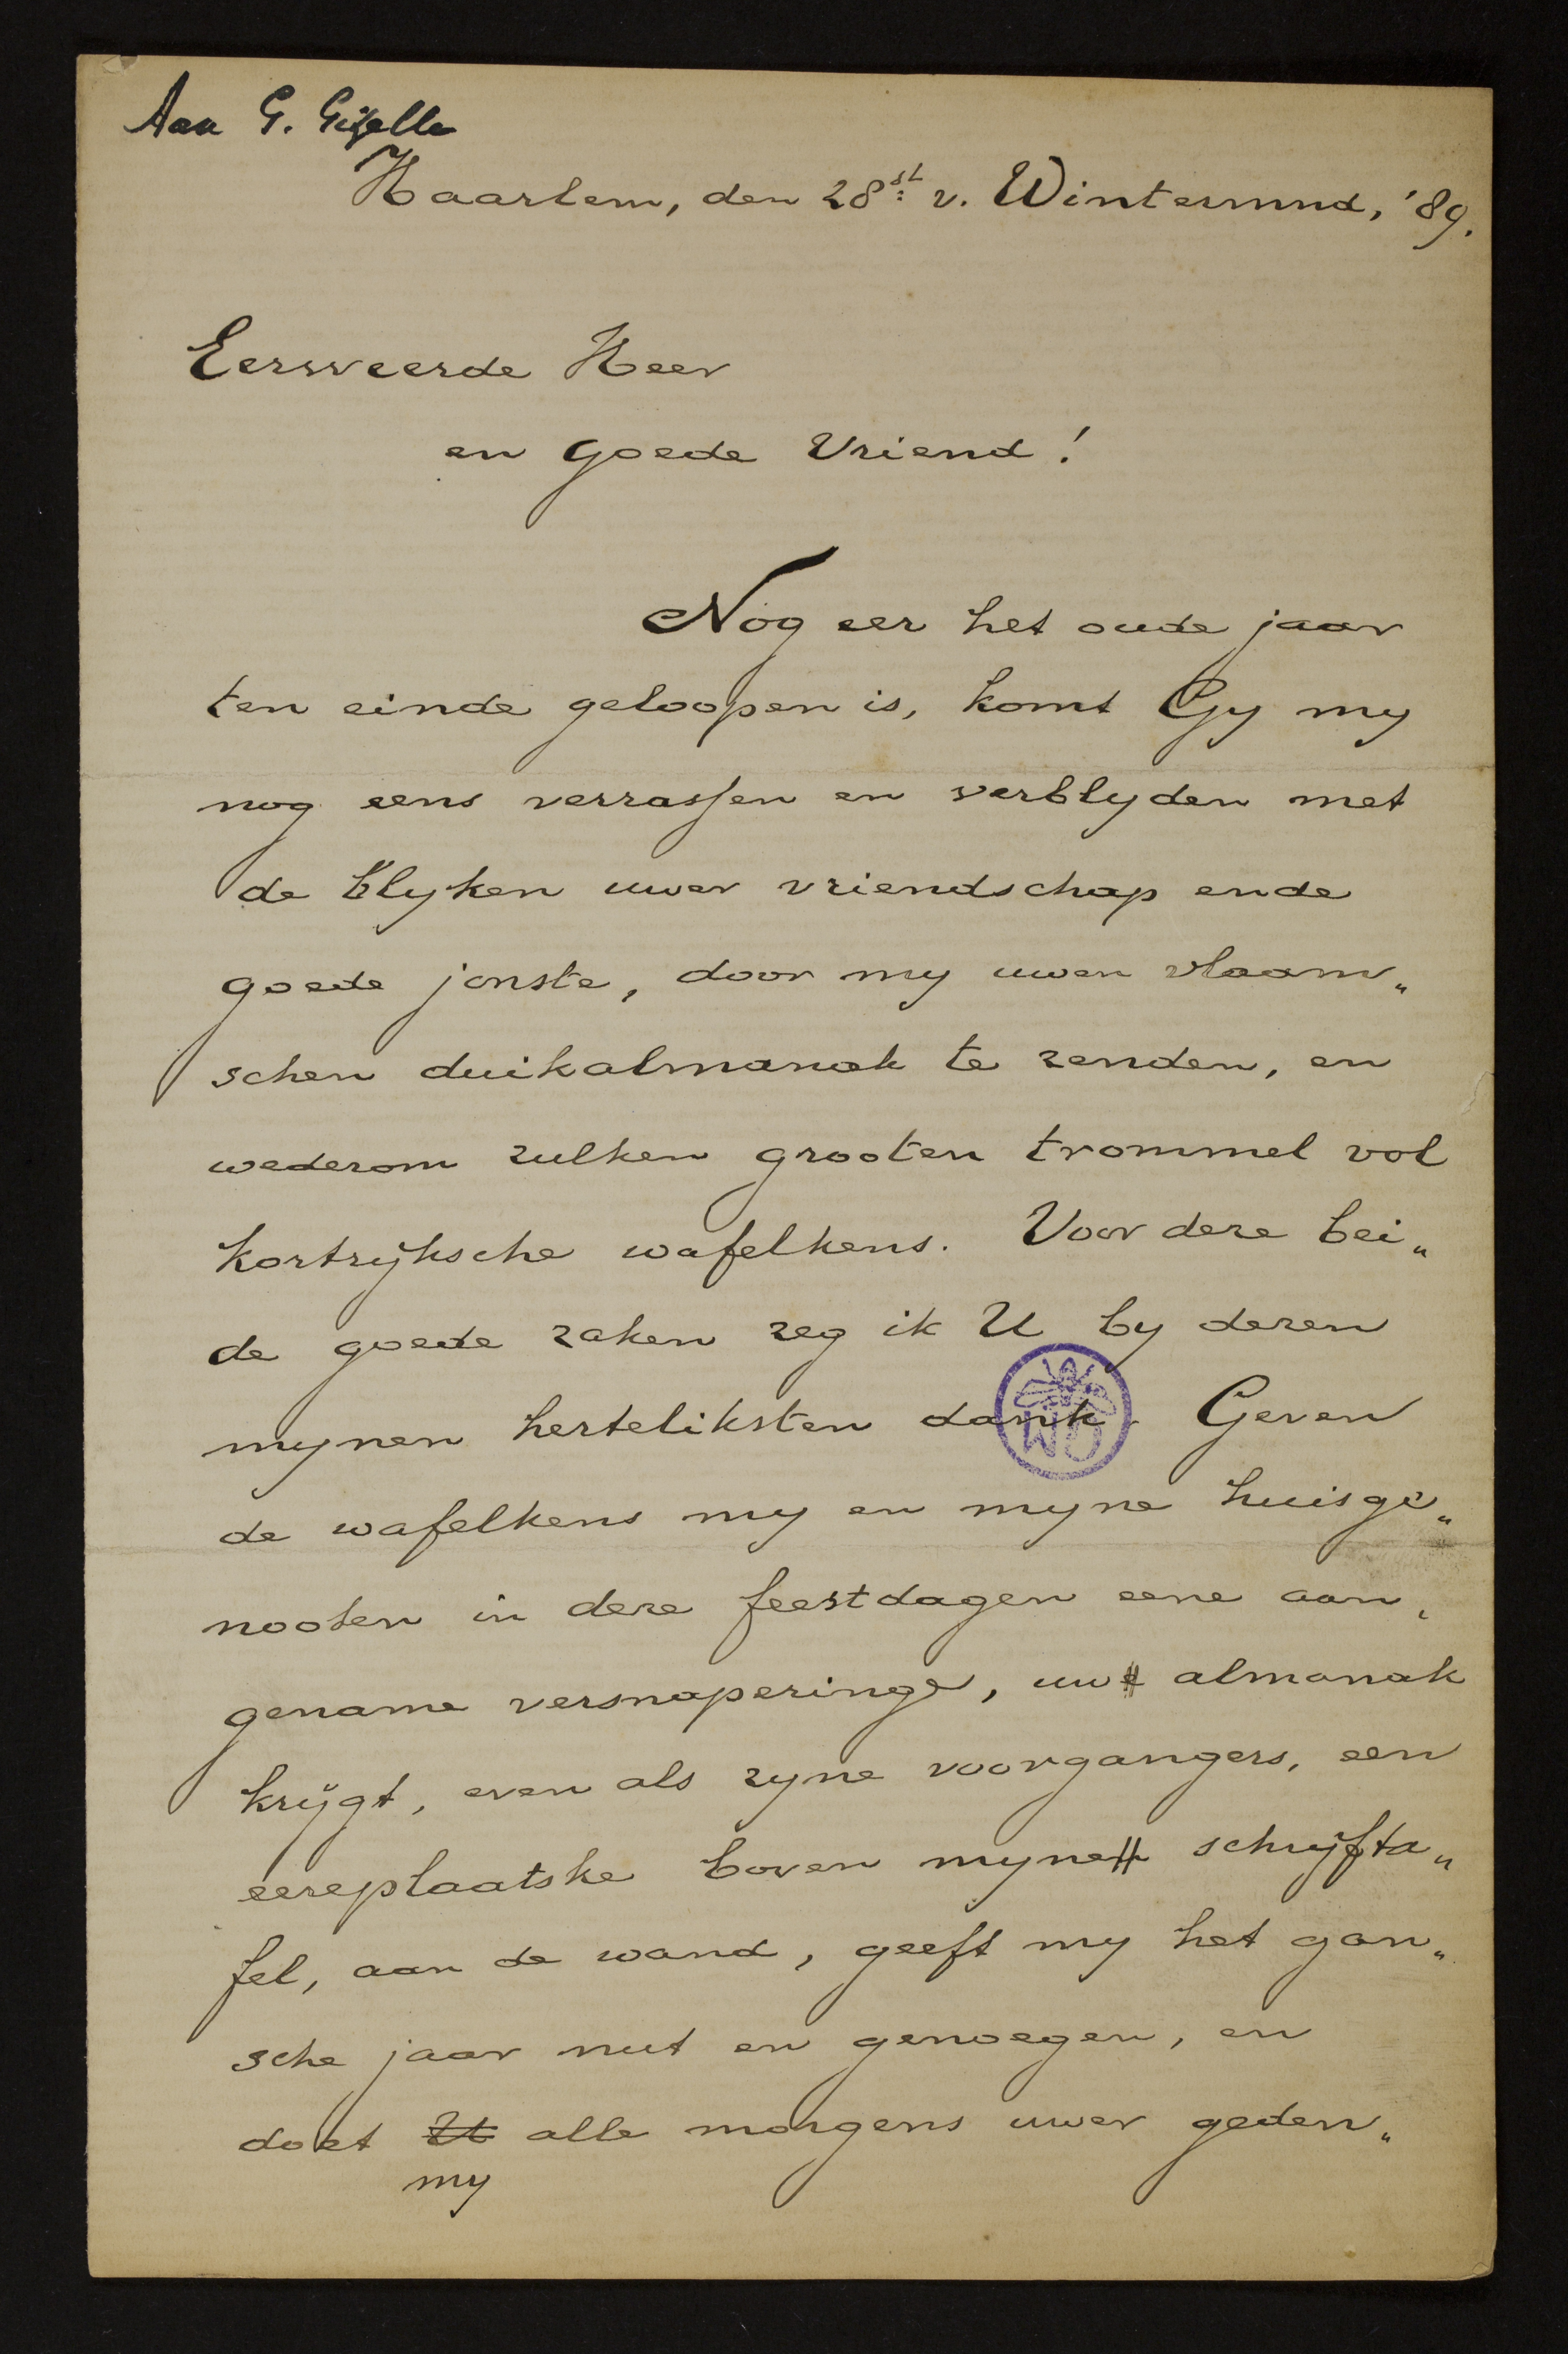 Aan G. Gezelle
Haarlem, den 28st v. Wintermnd, '89.
Eerweerde Heer
en goede Vriend!
Nog eer het oude jaar
ten einde geloopen is, komt Gy my
nog eens verrassen en verblyden met
de blyken uwer vriendschap ende
goede jonste, door my uwen vlaam„
schen duikalmanak te zenden, en
wederom zulken grooten trommel vol
kortrijksche wafelkens. Voor deze bei„
de goede zaken zeg ik U by dezen
mynen herteliksten dank. Geven
de wafelkens my en myne huisge„
nooten in deze feestdagen eene aan„
gename versnaperinge, uw almanak
krijgt, even als zyne voorgangers, een
eereplaatske boven myne schrijfta„
fel, aan de wand, geeft my het gan„
sche jaar nut en genoegen, en
doet U alle morgens uwer geden„
my